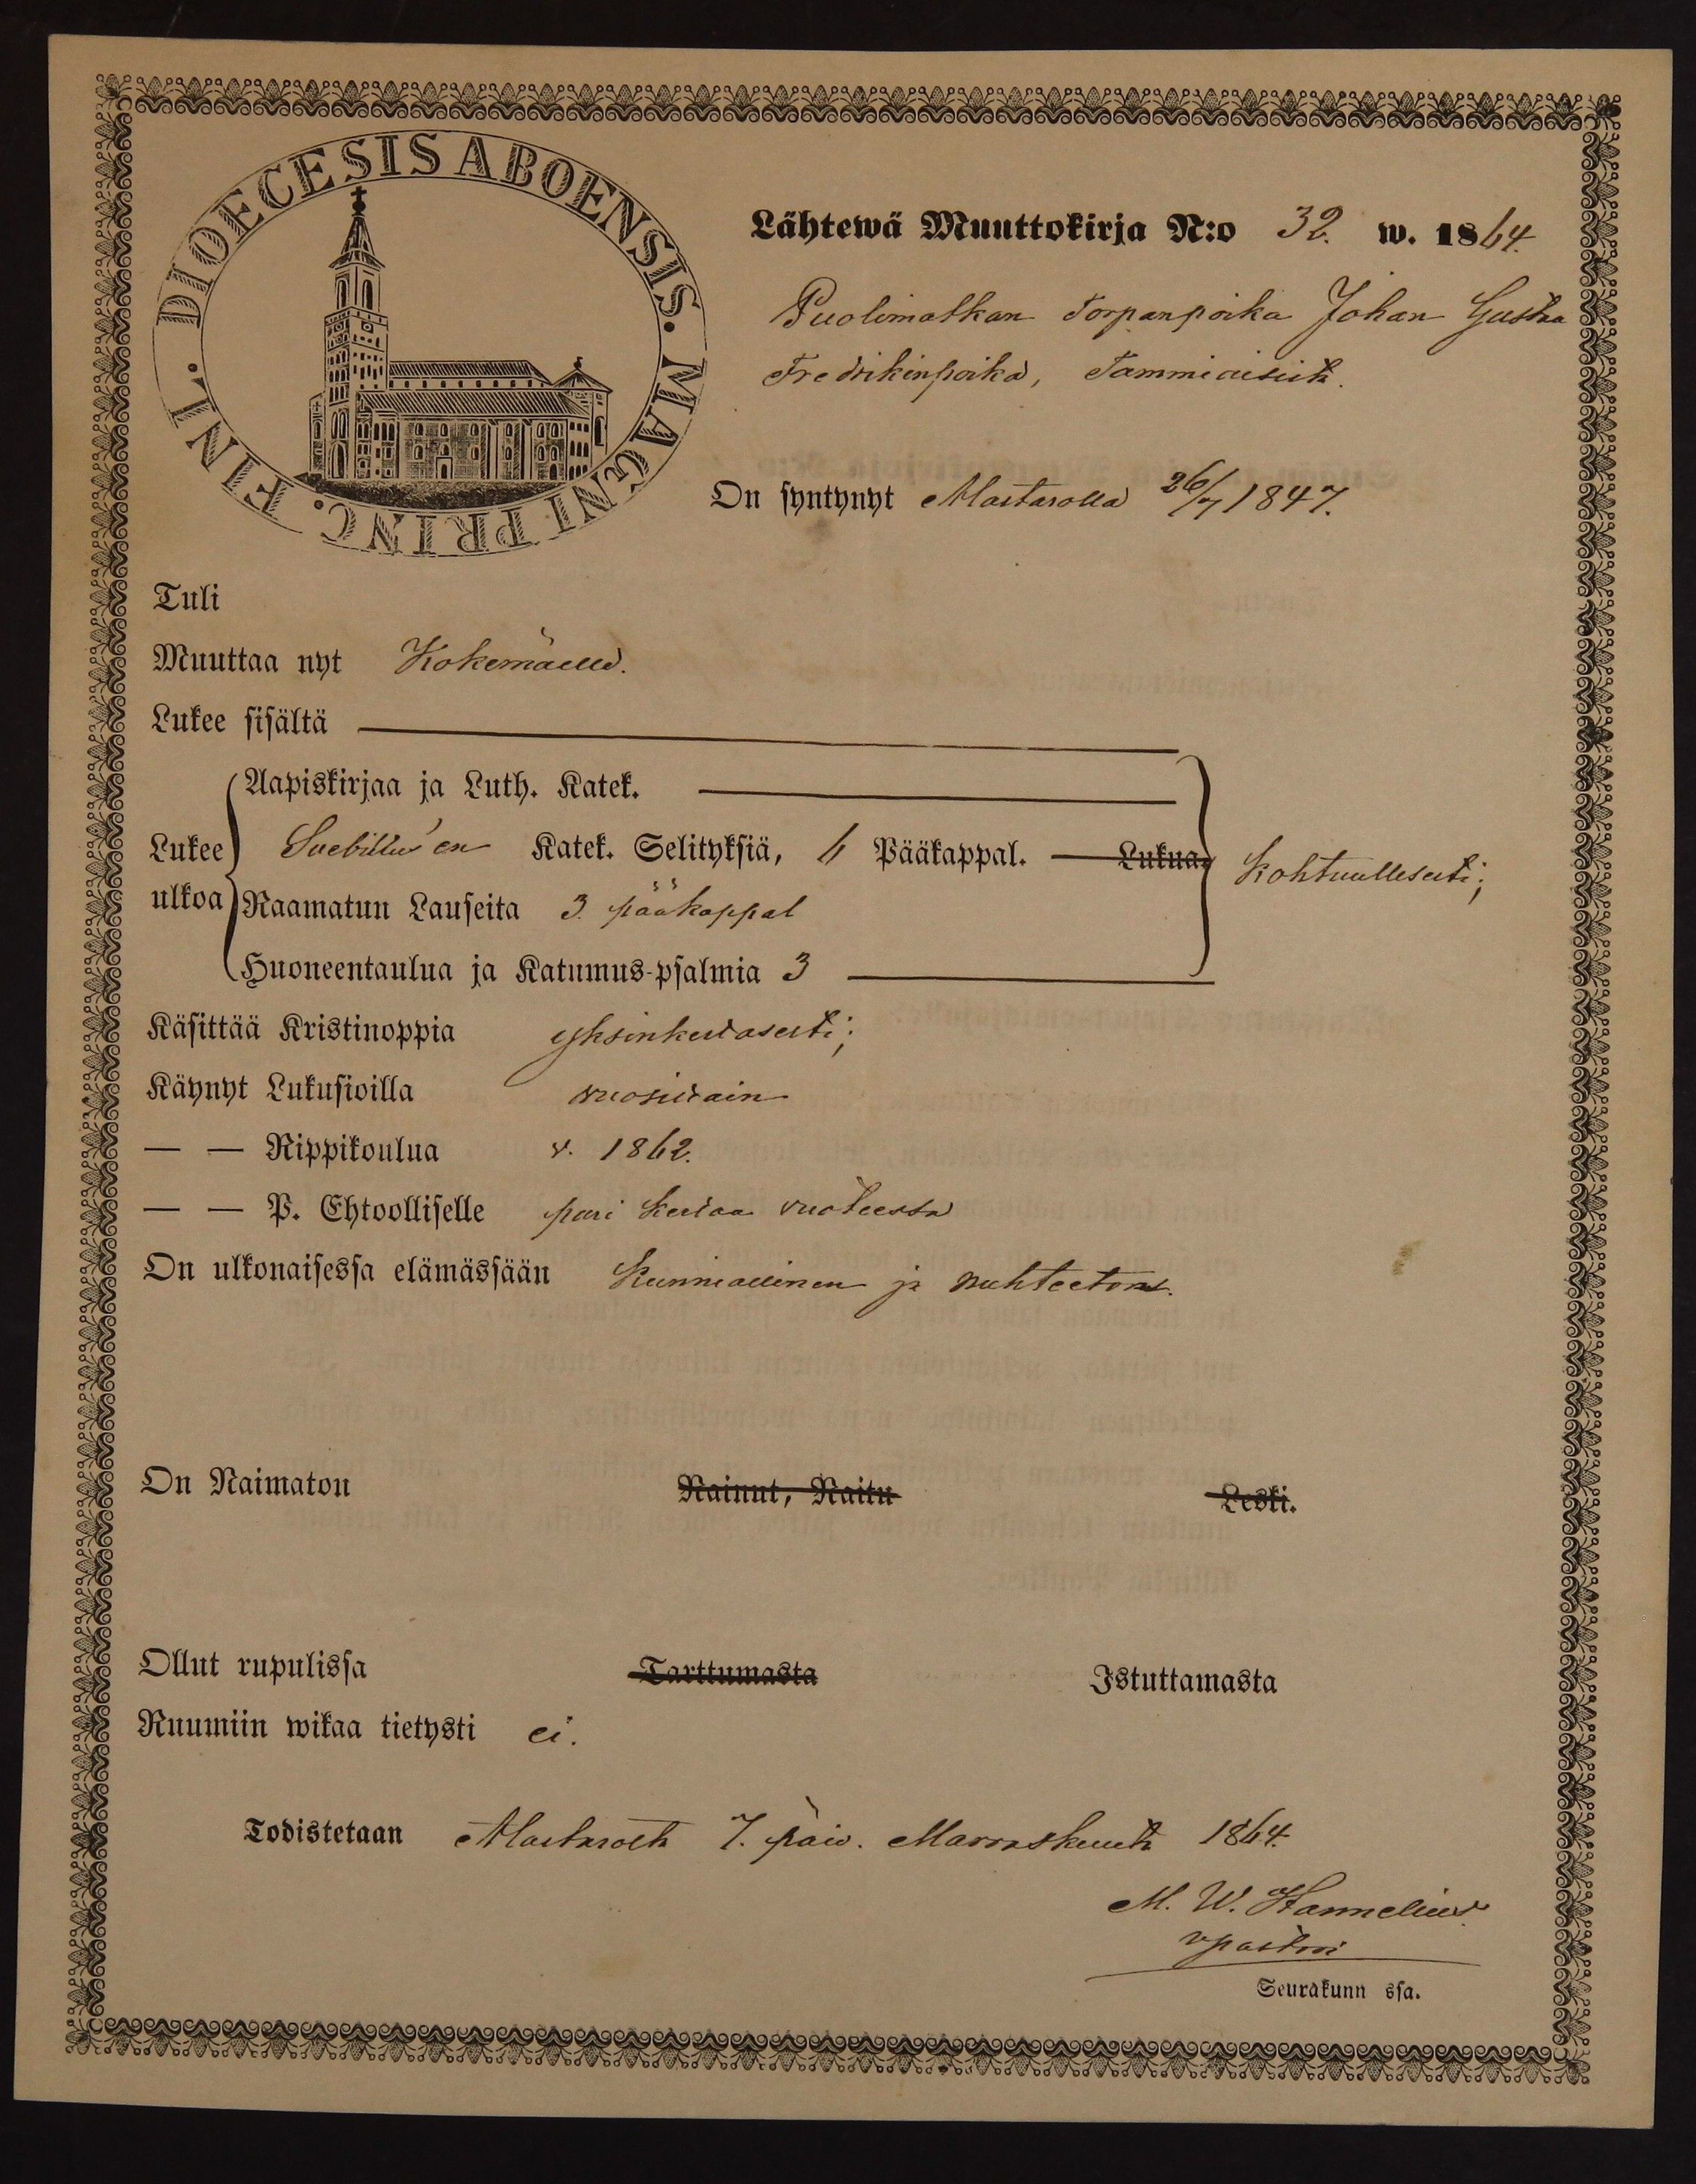 DIOECESIS ABOENSIS. MAGNI PRINC. FINL.
Lähtewä Muuttokirja N:o 32. w. 1864.
Puolimatkan Torpanpoika Johan Gustva
Fredrikinpoika, Tammiaisista.
On syntynyt Martarolla 26/7 1847.
Tuli
Muuttaa nyt Kokemäelle.
Lukee sisältä
Aapiskirjaa ja Luth. Katek.
Lukee Svebilius'en Katek. Selityksiä, 6 Pääkappal. Lukua, Kohtuullisesti;
ulkoa Raamatun Lauseita 3. pääkappal
Huoneentaulua ja Katumus-psalmia 3
Käsittää Kristinoppia yksinkertasesti;
Käynyt Lukusioilla vuosittain
— — Rippikoulua v. 1862.
— — P. Ehtoolliselle pari kertaa vuoteessa
On ulkonaisessa elämässään Kunniallinen ja nuhteeton.
On Naimaton Nainut, Naitu Leski.
Ollut rupulissa Tarttumasta Istuttamasta
Ruumiin wikaa tietysti ei.
Todistetaan Marttilasta 7. päiv. Marraskuuta 1864.
M. W. Hannelius
vpastori
Seurakunn ssa.